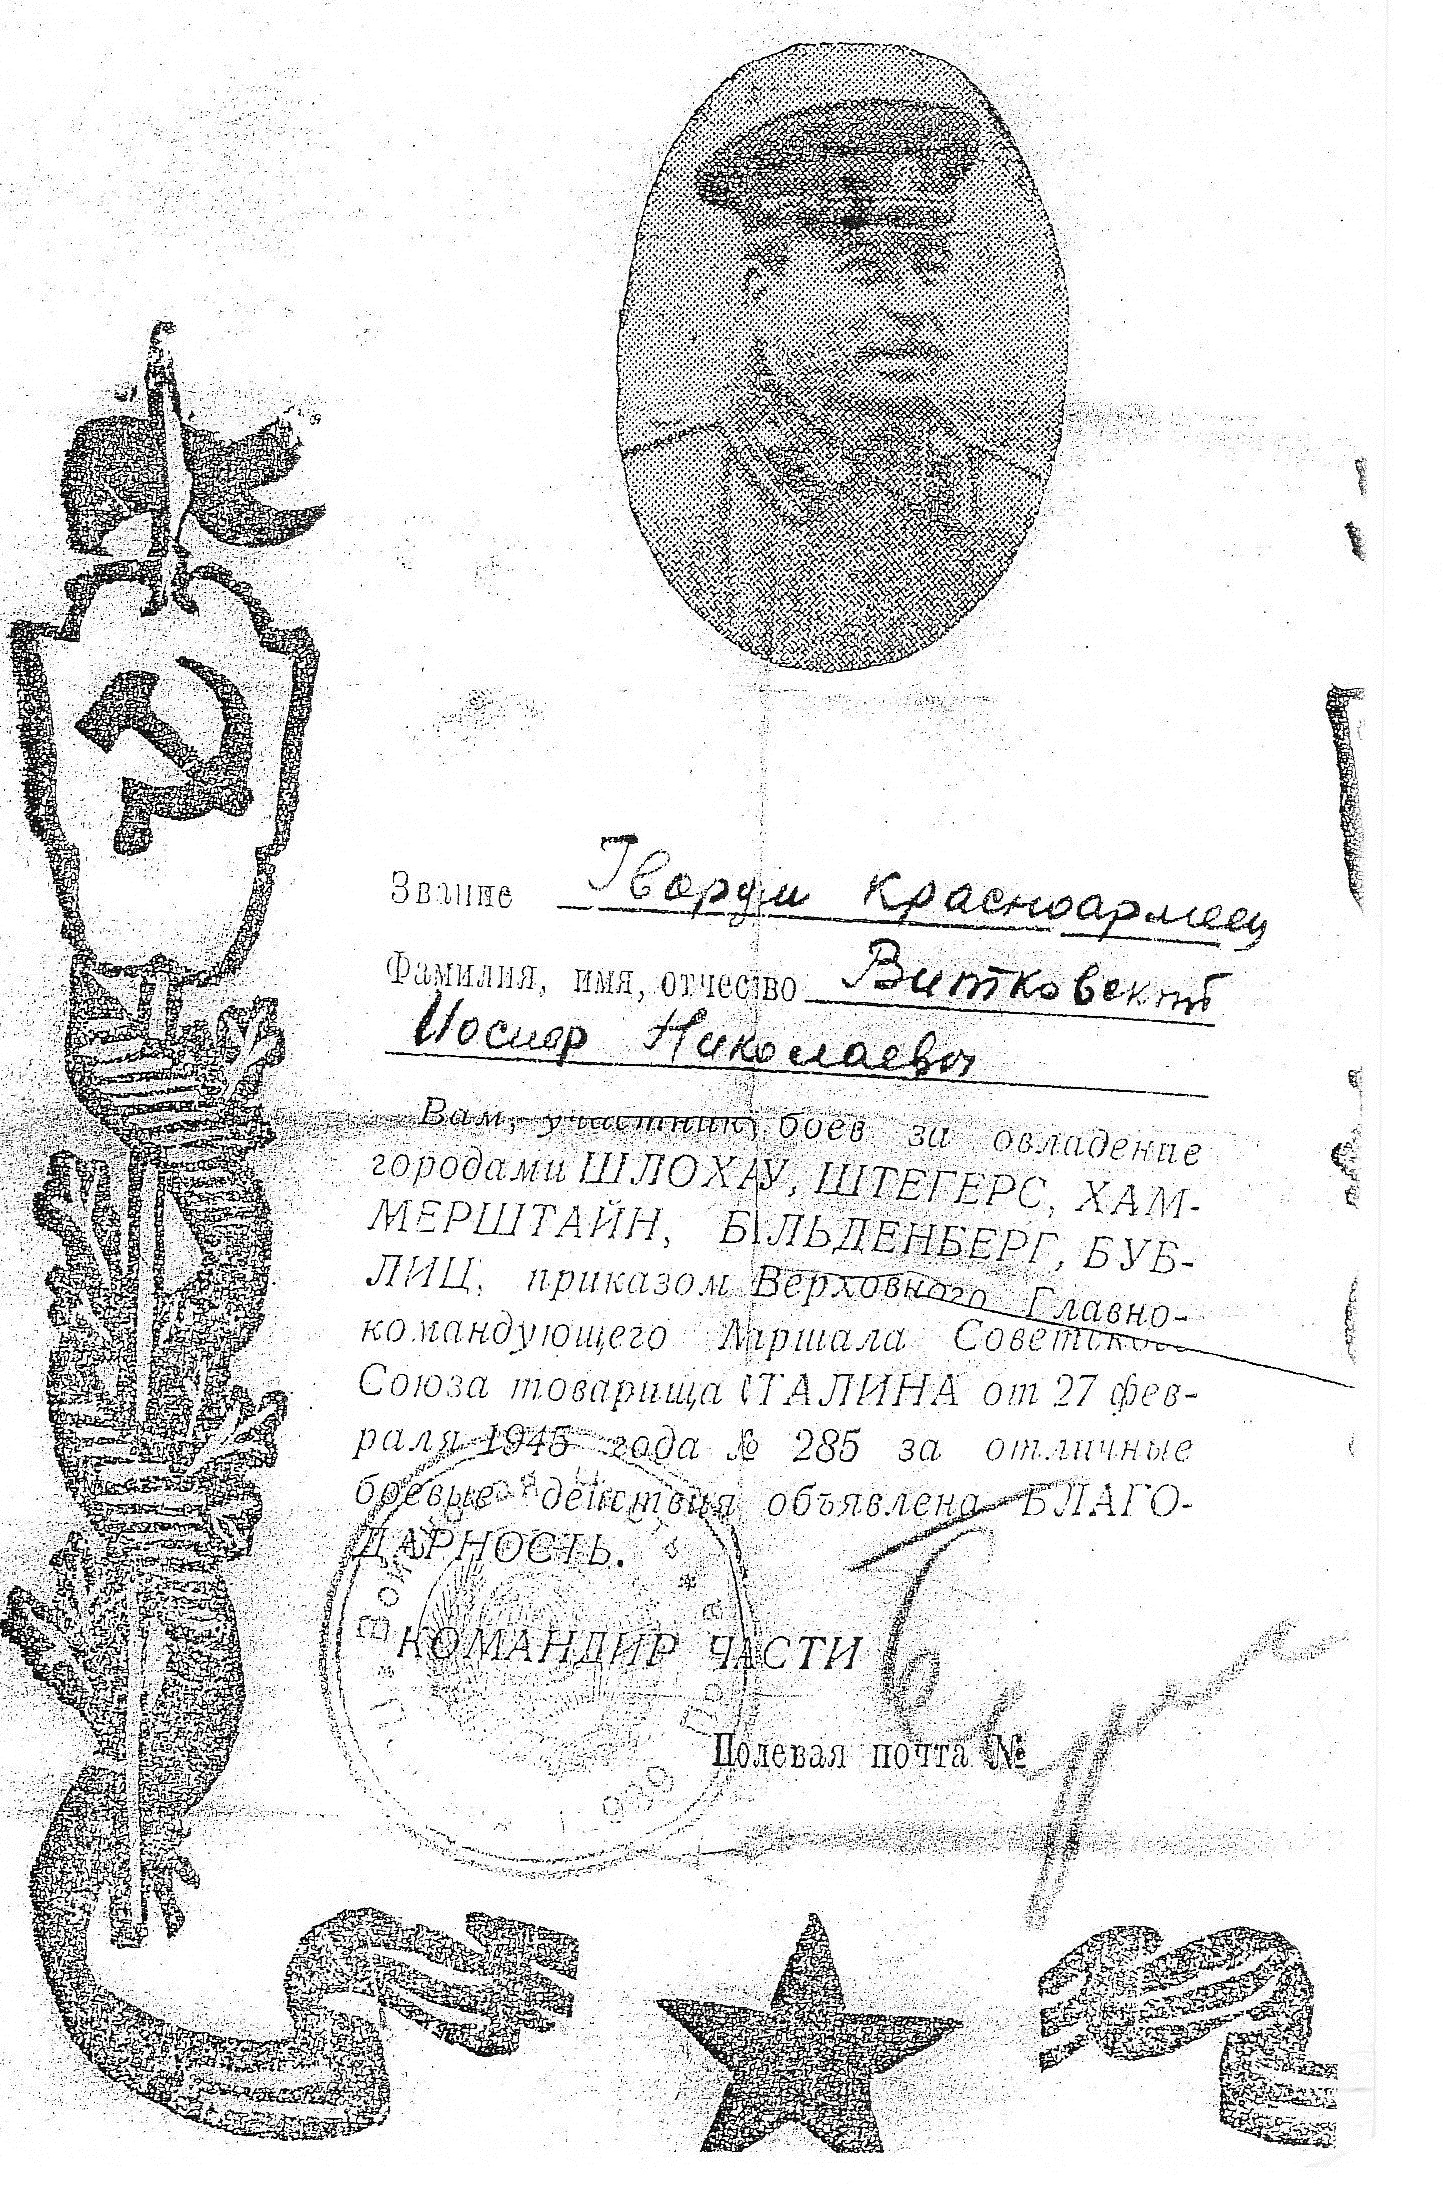 Звание Гвардии красноармеец
Фамилия, имя, отчество Витковский
Иосиф Николаевич
Вам, участнику боев за овладение
городами ШЛОХАУ, ШТЕГЕРС, ХАМ-
МЕРШТАЙН, БАЛЬДЕНБЕРГ, БУБ-
ЛИЦ, приказом Верховного Главно-
командующего Маршала Советского
Союза товарища СТАЛИНА от 27 фев-
раля 1945 года № 285 за отличные
боевые действия объявлена БЛАГО-
ДАРНОСТЬ.
КОМАНДИР ЧАСТИ
Полевая почта №